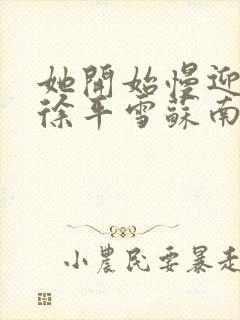 她開始慢迎
徐平雪蘇南
小農民要暴走